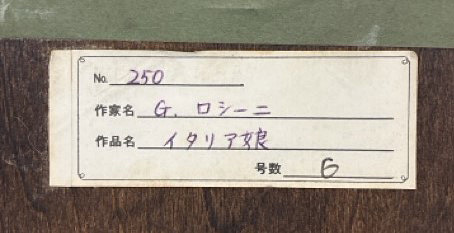 No. 250
作家名 G. ロシーニ
作品名 イタリア娘
号数 6